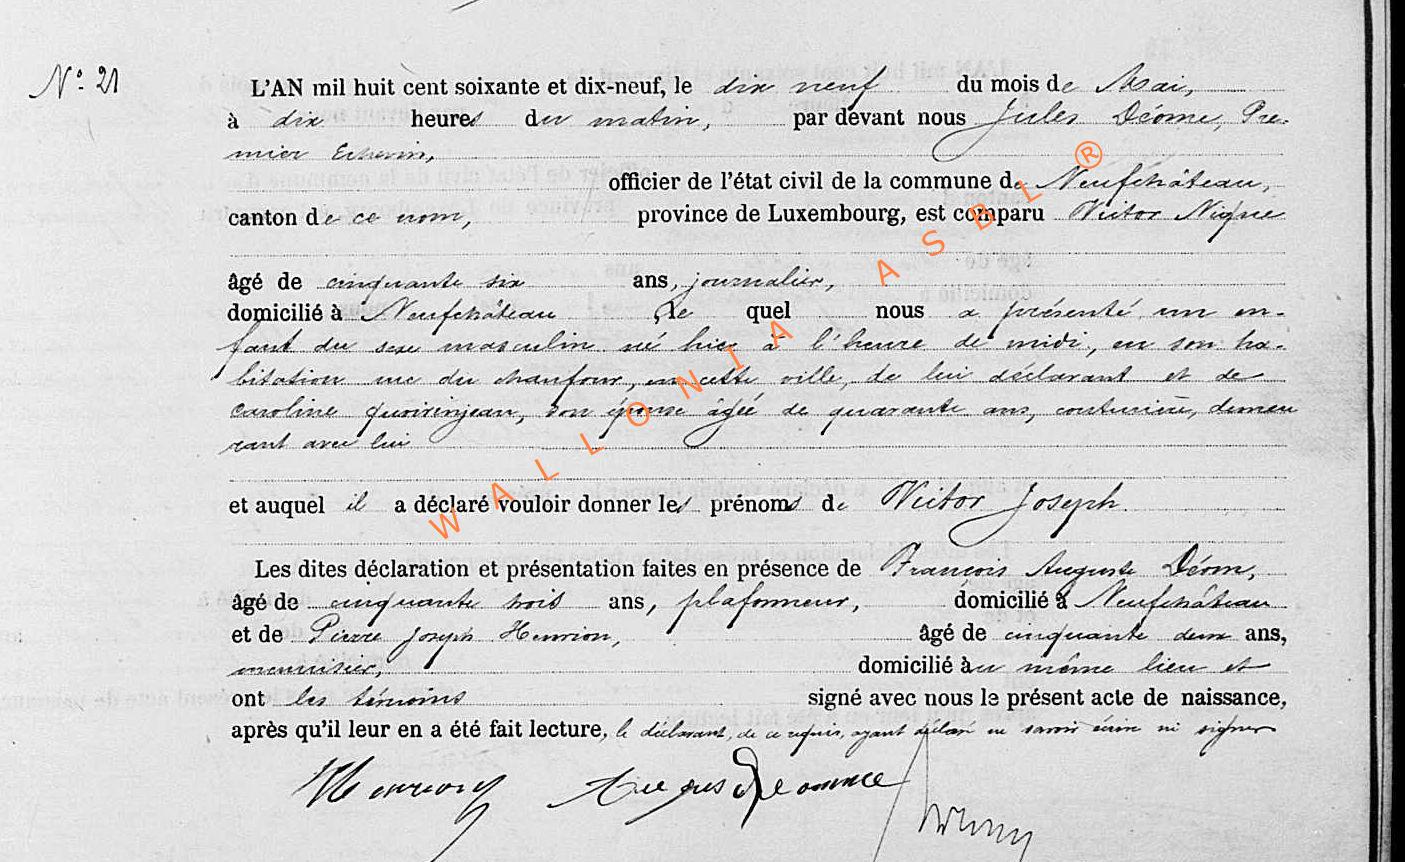 N° 21
L'AN mil huit cent soixante et dix-neuf, le dix neuf du mois de Mai,
à dix heures du matin, par devant nous Jules Déome, Pre-
mier Echevin,
officier de l'état civil de la commune de Neufchâteau,
canton de ce nom, province de Luxembourg, est comparu Victor Nigne
âgé de cinquante six ans, journalier,
domicilié à Neufchâteau Le quel nous a présenté un en-
fant du sexe masculin né hier à l'heure de midi, en son ha-
bitation rue du chaufour, en cette ville, de lui déclarant et de
Caroline Quoirinjean, son épouse âgée de quarante ans, couturière, demeu
rant avec lui
et auquel il a déclaré vouloir donner les prénoms de Victor Joseph.
Les dites déclaration et présentation faites en présence de François Auguste Déom,
âgé de cinquante trois ans, plafonneur, domicilié à Neufchâteau
et de Pierre Joseph Henrion, âgé de cinquante deux ans,
menuisier, domicilié au même lieu et
ont les témoins signé avec nous le présent acte de naissance,
après qu'il leur en a été fait lecture, le déclarant, de ce requis, ayant déclaré ne savoir écrire ni signer
WALLONIA ASBL ®